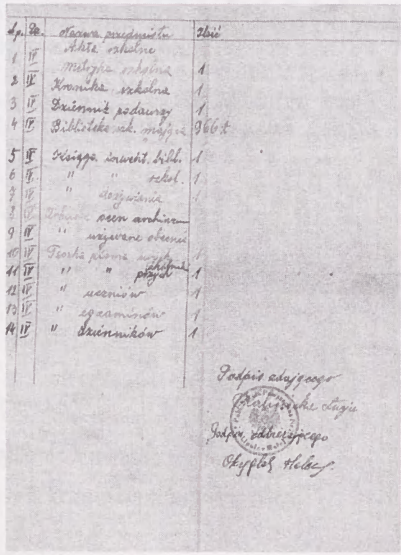 Lp. Dz. Nazwa przedmiotu Ilość
Akta szkolne
1 IV Metryka szkolna 1
2 IV Kronika szkolna 1
3 IV Dziennik podawczy 1
4 IV Biblioteka szk. mająca 966 t
5 IV Księga inwent. bibl. 1
6 IV " " szkol. 1
7 IV " dożywiania 1
8 IV ocen archiwum
9 IV " używane obecnie 1
10 IV Teczka pisma 1
11 IV " " przych 1
12 IV " uczniów 1
13 IV " egzaminów 1
14 IV " dzienników 1
Podpis zdającego
Podpis odbierającego